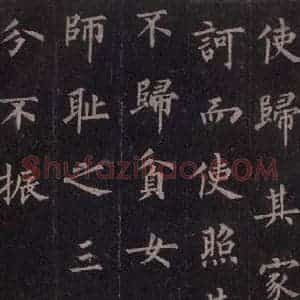 使歸其家
訶而使照
不歸負女
師耻之三
兮不振
Shufazidao.COM